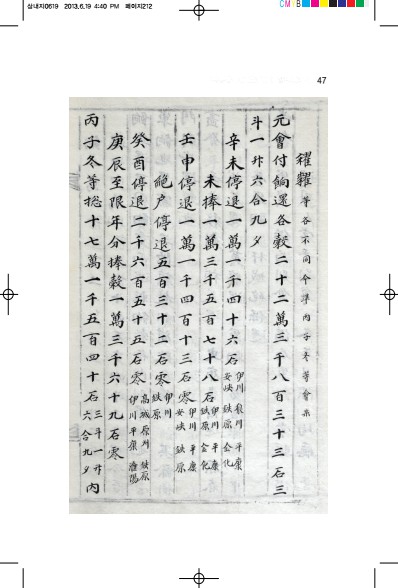 삼내지0619 2013.6.19 4:40 PM 페이지212
CM
47
糶糴等各不同今準丙子冬等會案
元會付餉還各穀二十二萬三千八百三十三石三
斗一升六合九夕
辛未停退一萬一千四十六石 伊川 平康 安峽 鉄原 金化
未捧一萬三千五百七十八石 伊川 平康 鉄原 金化
壬申停退一萬一千四百十三石零 伊川 平康 安峽 鉄原
絶戶停退五百三十二石零 伊川 鉄原
癸酉停退二千六百五十五石零 高城 原州 鉄原 伊川 平康
庚辰至限年分捧穀一萬三千六十九石零
丙子冬等捴十七萬一千五百四十石 三斗一升六合九夕 內